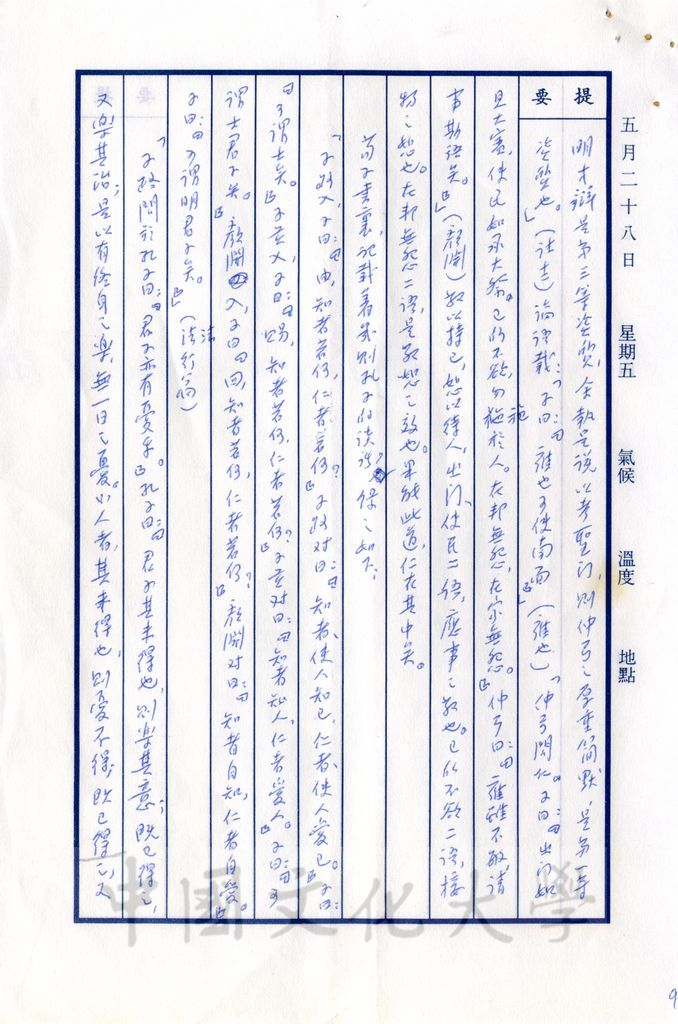 五月二十八日 星期五 氣候 溫度 地點
提要
明才辯是第三等資質，全般是說以考聖門，則仲弓之厚重簡默，是第一等
資質也。」論語載：「子曰：『雍也可使南面』（雍也）「仲弓問仁。子曰：『出門如
見大賓，使民如承大祭。己所不欲，勿施於人。在邦無怨，在家無怨。』仲弓曰：『雍雖不敏，請
事斯語矣。』」（顏淵）敬以持己，恕以待人，出門、使民二語，應事之敬也。己所不欲二語，接
物之恕也。在邦無怨二語，是敬恕之效也。果能此道，仁在其中矣。
荀子書裏，記載著幾則孔子的談話，錄之如下：
「子路入，子曰：『由，知者若何，仁者若何？』子路對曰：『知者使人知己，仁者使人愛己。』子曰：
『可謂士矣。』子貢入，子曰：『賜，知者若何，仁者若何？』子貢對曰：『知者知人，仁者愛人。』子曰：『可
謂士君子矣。』顏淵入，子曰：『回，知者若何，仁者若何？』顏淵對曰：『知者自知，仁者自愛。』
子曰：『可謂明君子矣。』」
「子路問於孔子曰：『君子亦有憂乎。』孔子曰：『君子其未得也，則樂其意；既已得之，
又樂其治；是以有終身之樂，無一日之憂。小人者，其未得也，則憂不得；既已得之，又
中國文化大學
9